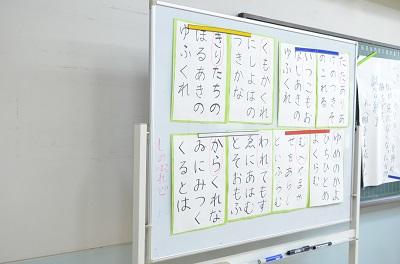 ただありあ
けのつきそ
のこれる
いつこもお
なしあきの
ゆふくれ
くもかくれ
にしよはの
つきかな
きりたちの
ほるあきの
ゆふくれ
ゆめのかよ
ひちひとめ
よくらむ
むへやまか
せをあらし
といふらむ
われてもす
ゑにあはむ
とそおもふ
からくれな
ゐにみつく
くるとは